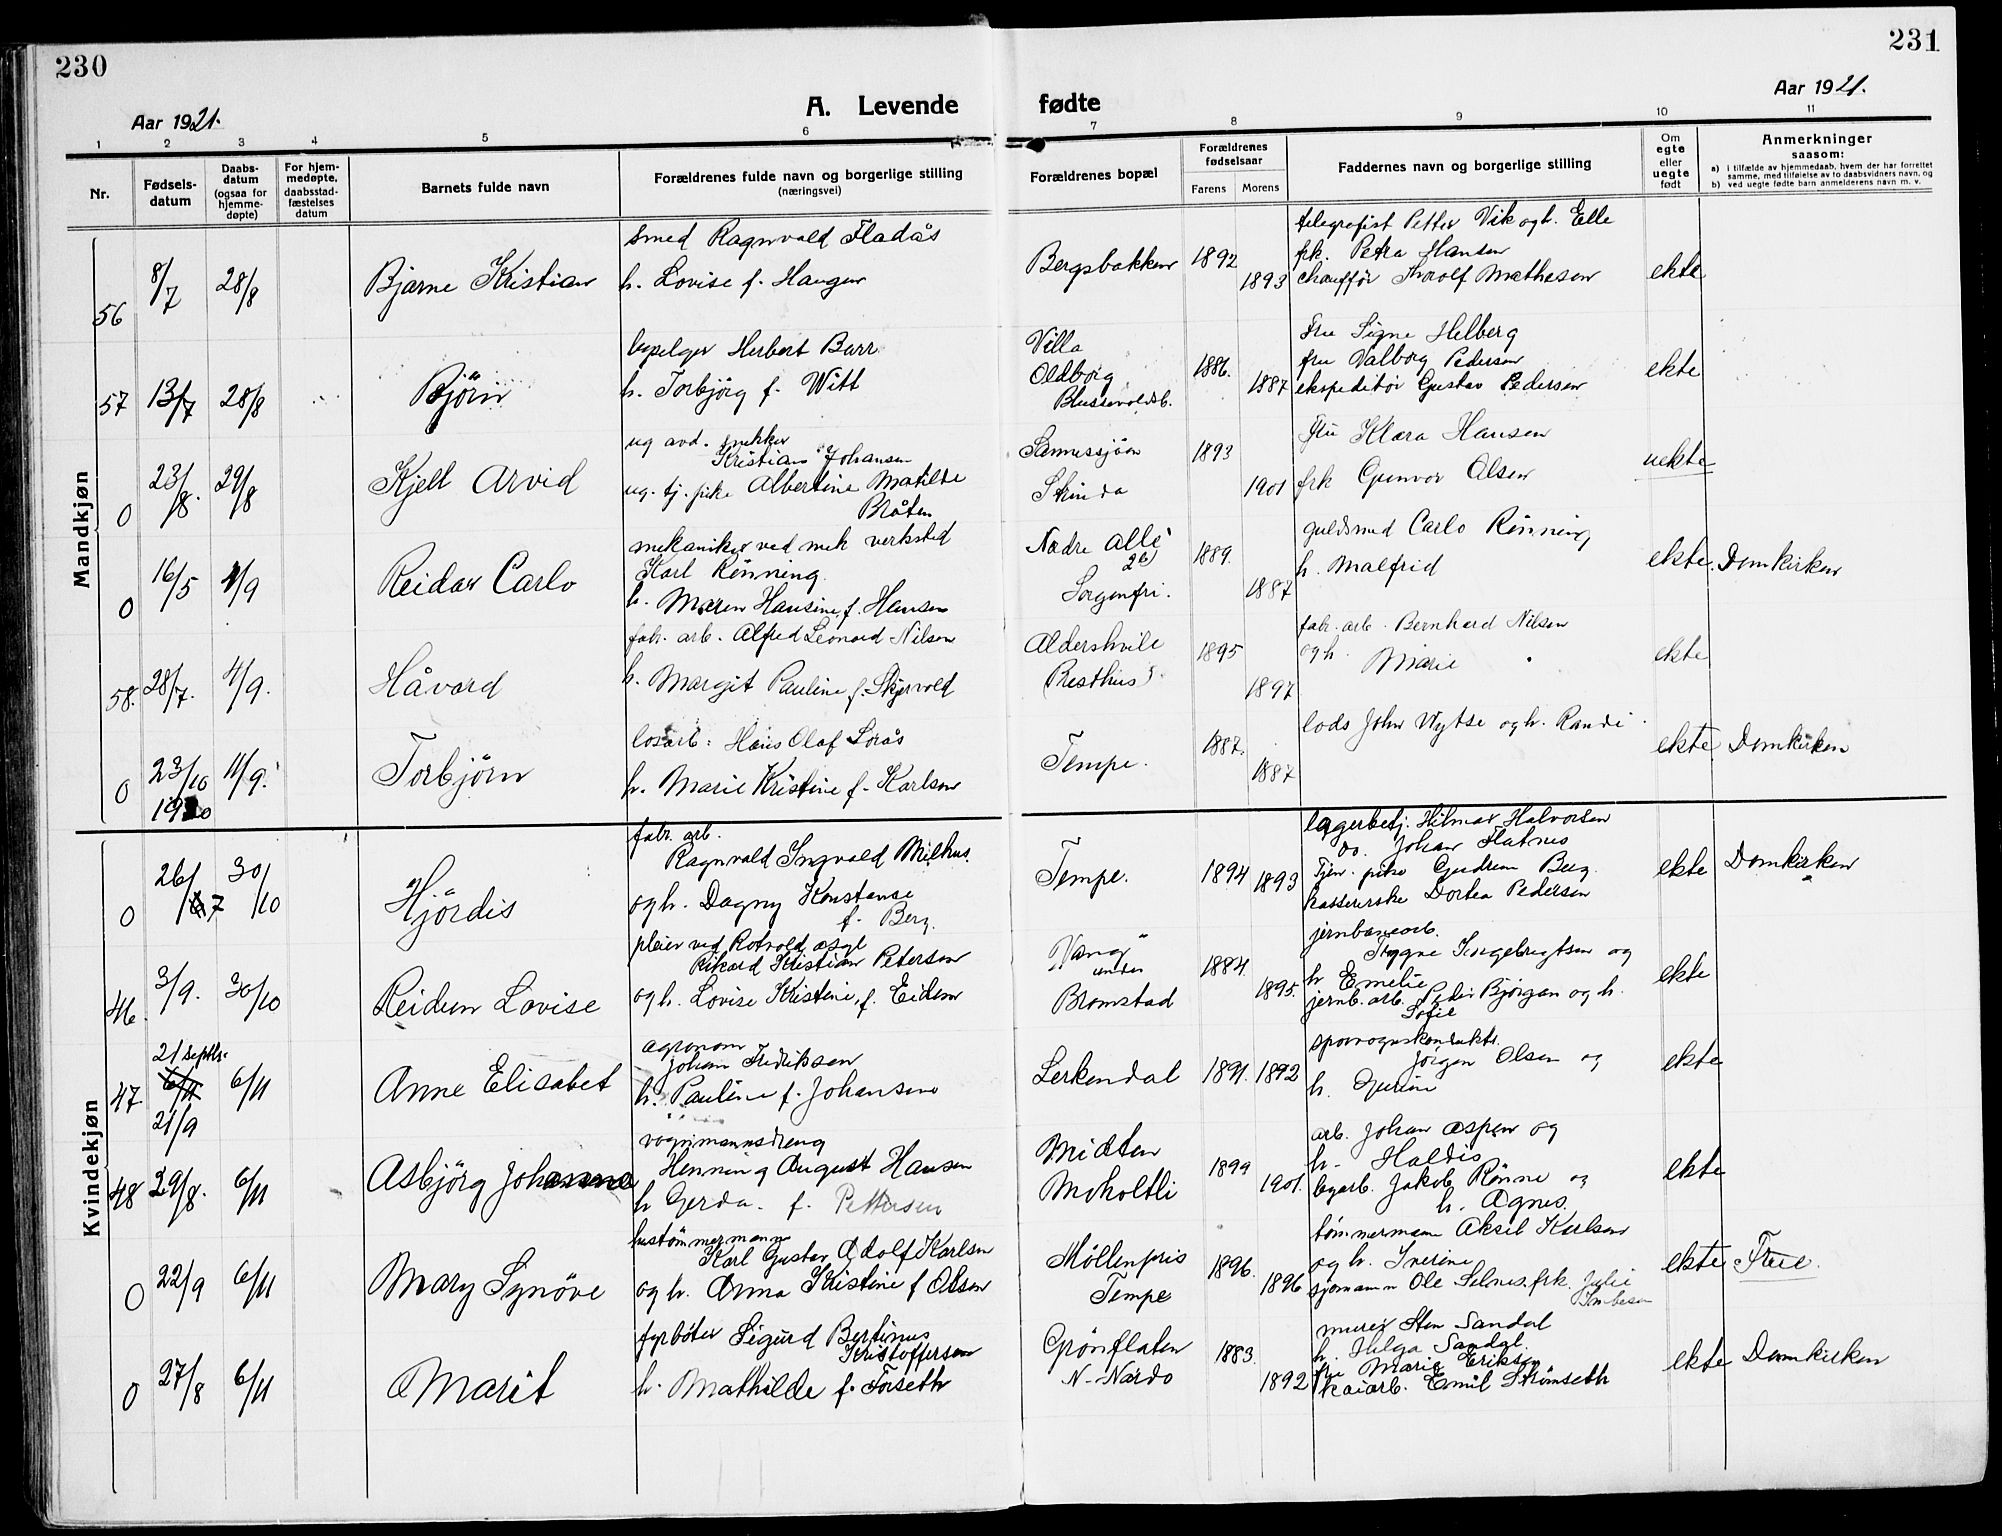 230
231
Aar 1921.
A. Levende fødte
Aar 1921.
1 2 3 4 5 6 7 8 9 10 11
Nr.
Fødsels-
datum
Daabs-
datum
(ogsaa for
hjemme-
døpte)
For hjem-
medøpte,
daabsstad-
fæstelses
datum
Barnets fulde navn
Forældrenes fulde navn og borgerlige stilling
(næringsvei)
Forældrenes bopæl
Forældrenes
fødselsaar
Farens Morens
Faddernes navn og borgerlige stilling
Om
egte
eller
uegte
født
Anmerkninger
saasom:
a) i tilfælde av hjemmedaab, hvem der har forrettet
samme, med tilføielse av to daabsvidners navn, og
b) ved uegte fødte barn anmelderens navn m. v.
Mandkjøn
56 8/7 28/8 Bjarne Kristian
smed Ragnvald Fladås
h. Lovise f. Haugen
Bergsbakken 1892 1893
telegrafist Petter Vik og h. Elle
frk. Petra Hansen
chauffør Thorolf Mathesen
ekte
57 13/7 28/8 Björn
Herbert Barr
h. Torbjörg f. Witt
Villa
Oldborg
Blussevoldsb.
1886. 1887
Fru Signe Helberg
fru Valborg Pedersen
ekspeditör Gustav Pedersen
ekte
0 23/8. 29/8 Kjell Arvid
ug avd. snekker
Kristian Johansen
ug. tj. pike Albertine Matilde
Bråten
Sannessjöen
Strinda
1893 1901
Fru Klara Hansen
frk Gunvor Olsen
uekte
0 16/5 4/9 Reidar Carlo
mekaniker ved mek verksted
Karl Rönning.
h. Maren Hansine f. Hansen
Nedre alle
26
Sorgenfri.
1889. 1887
guldsmed Carlo Rönning
h. Malfrid
ekte. Domkirken
58. 28/7. 4/9. Håvard
fabr. arb. Alfred Leonard Nilsen
h. Margit Pauline f. Skjervold
Aldershvile
(Presthus).
1895 1897
fabr. arb. Bernhard Nilsen
og h. Marie "
ekte
0 23/10 1920 11/9. Torbjörn
losarb: Hans Olaf Lorås
h. Marie Kristine f. Karlsen
Tempe.
1887. 1887
lods John Wytse og h. Randi
ekte Domkirken
Kvindekjøn
0 26/7 30/10 Hjördis
fabr. arb.
Ragnvald Ingvald Milhus.
og h. Dagny Konstanse
f. Berg.
Tempe. 1894 1893
lagerbetj. Hilmar Halvorsen
do. Johan Flatnes
Tjen. pike Gudrun Berg.
kassererske Dortea Pedersen
ekte Domkirken
46. 3/9. 30/10 Reidun Lovise
pleier ved Rotvold asyl
Rikard Kristian Petersen
og h. Lovise Kristine, f. Eidem
"Vang"
under
Bromstad
1884. 1895.
jernbanearb.
Trygve Ingebrigtsen og
h Emelie
jernb. arb. Peder Bjørgan og h.
Sofie
ekte
47 21 septbr. 6/11 21/9 6/11 Anne Elisabet
agronom
Johan Fredriksen
h. Pauline f. Johansen
Lerkendal 1891. 1892
sporvognskonduktr.
Jörgen Olsen og
h. Gurine
ekte
48 29/8. 6/11 Asbjörg Johanna
vognmannsdreng
Henning August Hansen
h Gerda. f. Pettersen
Midten
Moholtli
1899 1901.
arb. Johan Aspen og
h. Haldis
byarb. Jakob Rönne og
h. Agnes.
ekte
0 22/9 6/11 Mary Synöve
hustömmermann
Karl Gustav Adolf Karlsen
og h. Anna Kristine f Olsen
Möllenpris
Tempe
1896. 1896
tömmermann Aksel Karlsen
og h. Iverine
sjömann Ole Selnes, frk. Julie
ekte Frue.
0 27/8 6/11 Marit
fyrböter Sigurd Bertinus
Kristoffersen
h. Mathilde f. Forseth
Grönflaten
N-Nardo
1883. 1892
murer Sten Sandal
h. Helga Sandal.
fru Marie Eriksen
kaiarb. Emil Strömseth
ekte Domkirken